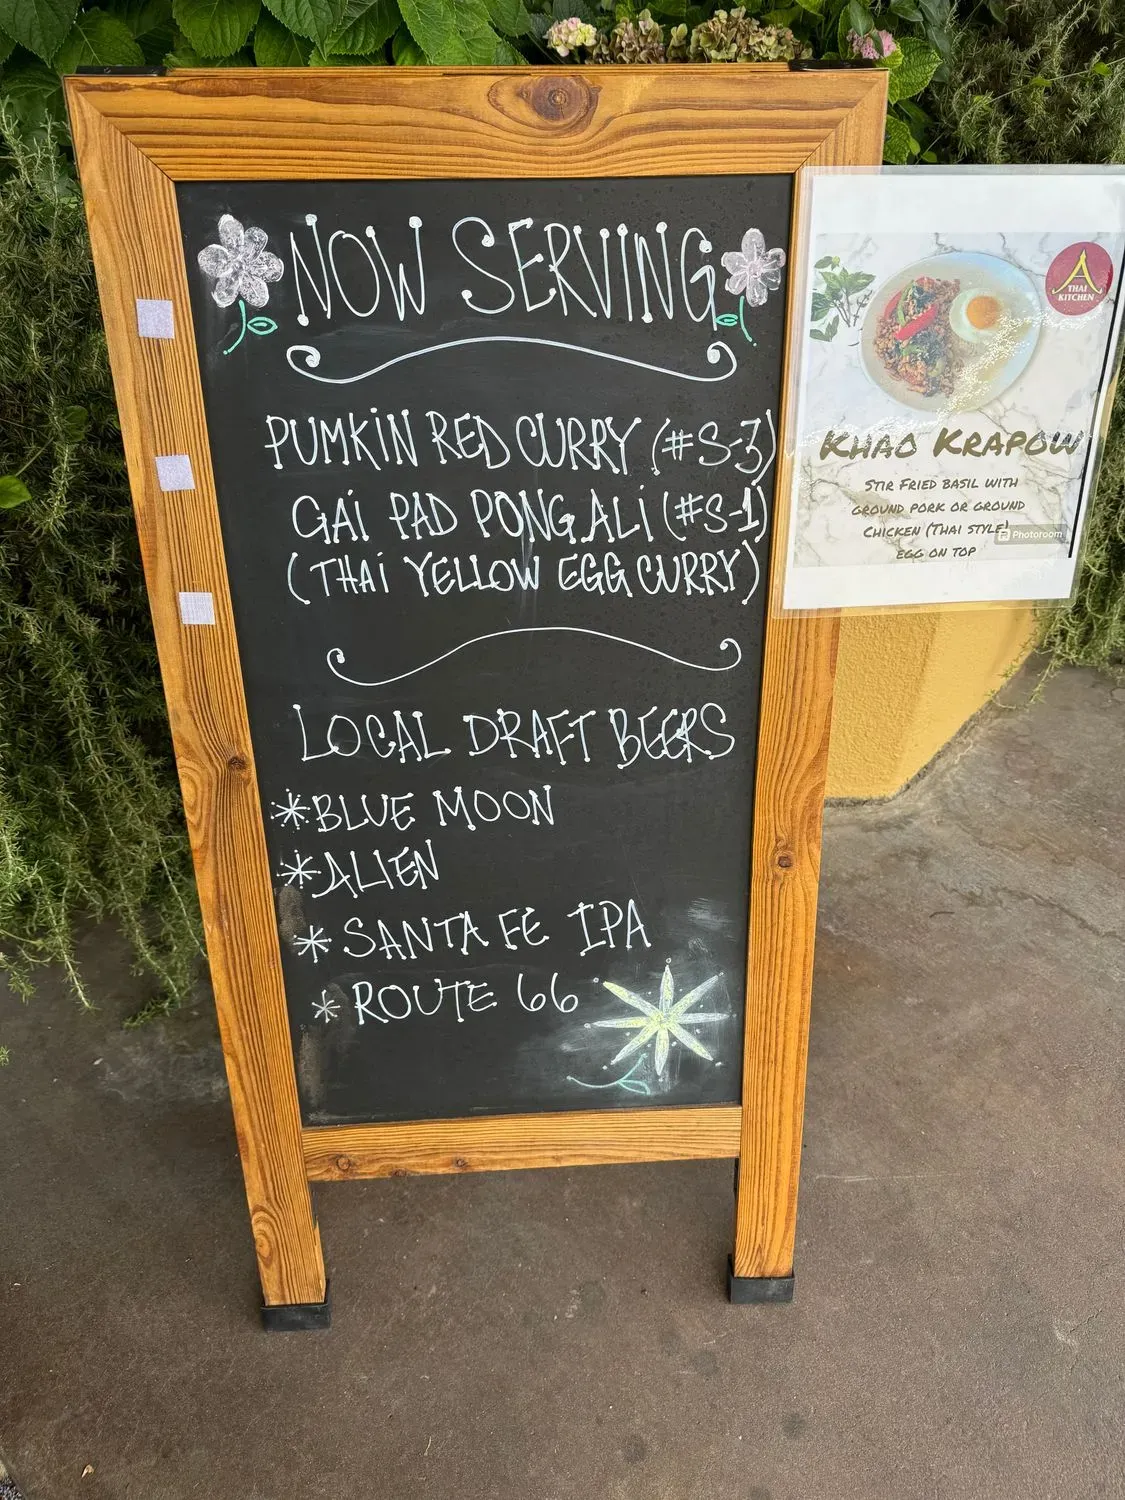 NOW SERVING
PUMKIN RED CURRY (#S-3)
GAI PAD PONG ALI (#S-1)
(THAI YELLOW EGG CURRY)
LOCAL DRAFT BEERS
*BLUE MOON
*ALIEN
*SANTA FE IPA
*ROUTE 66
THAI
KITCHEN
KHAO KRAPOW
STIR FRIED BASIL WITH
GROUND PORK OR GROUND
CHICKEN (THAI STYLE)
EGG ON TOP
Photoroom